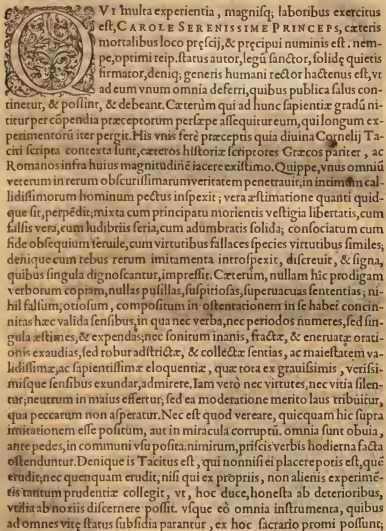 QVI multa experientia, magnisq; laboribus exercitus
est, CAROLE SERENISSIME PRINCEPS, cæteris
mortalibus loco pręscij, & pręcipui numinis est. nem-
pe, optimi reip. status autor, legũ sanctor, solidę quietis
firmator, deniq; generis humani rector hactenus est, vt
ad eum vnum omnia deferri, quibus publica salus con-
tinetur, & possint, & debeant. Cæterùm qui ad hunc sapientiæ gradũ ni-
titur per cõpendia præceptorum persæpe assequitur eum, qui longum ex-
perimentorũ iter pergit. His vnis ferè præceptis quia diuina Cornelij Ta-
citi scripta contexta sunt, cæteros historiæ scriptores Græcos pariter, ac
Romanos infra huius magnitudinẽ iacere existimo. Quippe, vnus omniũ
veterum in rerum obscurissimarum veritatem penetrauit, in intimum cal-
lidissimorum hominum pectus inspexit; vera æstimatione quanti quid-
que sit, perpẽdit; mixta cum principatu morientis vestigia libertatis, cum
falsis vera, cum ludibriis seria, cum adumbratis solida; consociatum cum
fide obsequium seruile, cum virtutibus fallaces species virtutibus similes;
denique cum rebus rerum imitamenta introspexit, discreuit, & signa,
quibus singula dignoscantur, impressit. Cæterùm, nullam hìc prodigam
verborum copiam, nullas pusillas, suspitiosas, superuacuas sententias; ni-
hil falsum, otiosum, compositum in ostentationem in se habet concin-
nitas hæc valida sensibus, in qua nec verba, nec periodos numeres, sed sin-
gula æstimes, & expendas; nec sonitum inanis, fractæ, & eneruatæ orati-
onis exaudias, sed robur adstrictæ, & collectæ sentias, ac maiestatem va-
lidissimæ, ac sapientissimæ eloquentiæ, quæ tota ex grauissimis, verissi-
misque sensibus exundat, admirere. Iam verò nec virtutes, nec vitia silen-
tur; neutrum in maius effertur; sed ea moderatione merito laus tribuitur,
qua peccatum non asperatur. Nec est quod vereare, quicquam hìc supra
imitationem esse positum, aut in miracula corruptũ. omnia sunt obuia,
ante pedes, in communi vsu posita; nimirum, priscis verbis hodierna facta
ostenduntur. Denique is Tacitus est, qui nonnisi ei placere potis est, quẽ
erudit; nec quenquam erudit, nisi qui ex propriis, non alienis experimẽ-
tis tantum prudentiæ collegit, vt, hoc duce, honesta ab deterioribus,
vtilia ab noxiis discernere possit. vsque eò omnia instrumenta, quibus
ad omnes vitę status subsidia parantur, ex hoc sacrario promi possunt.